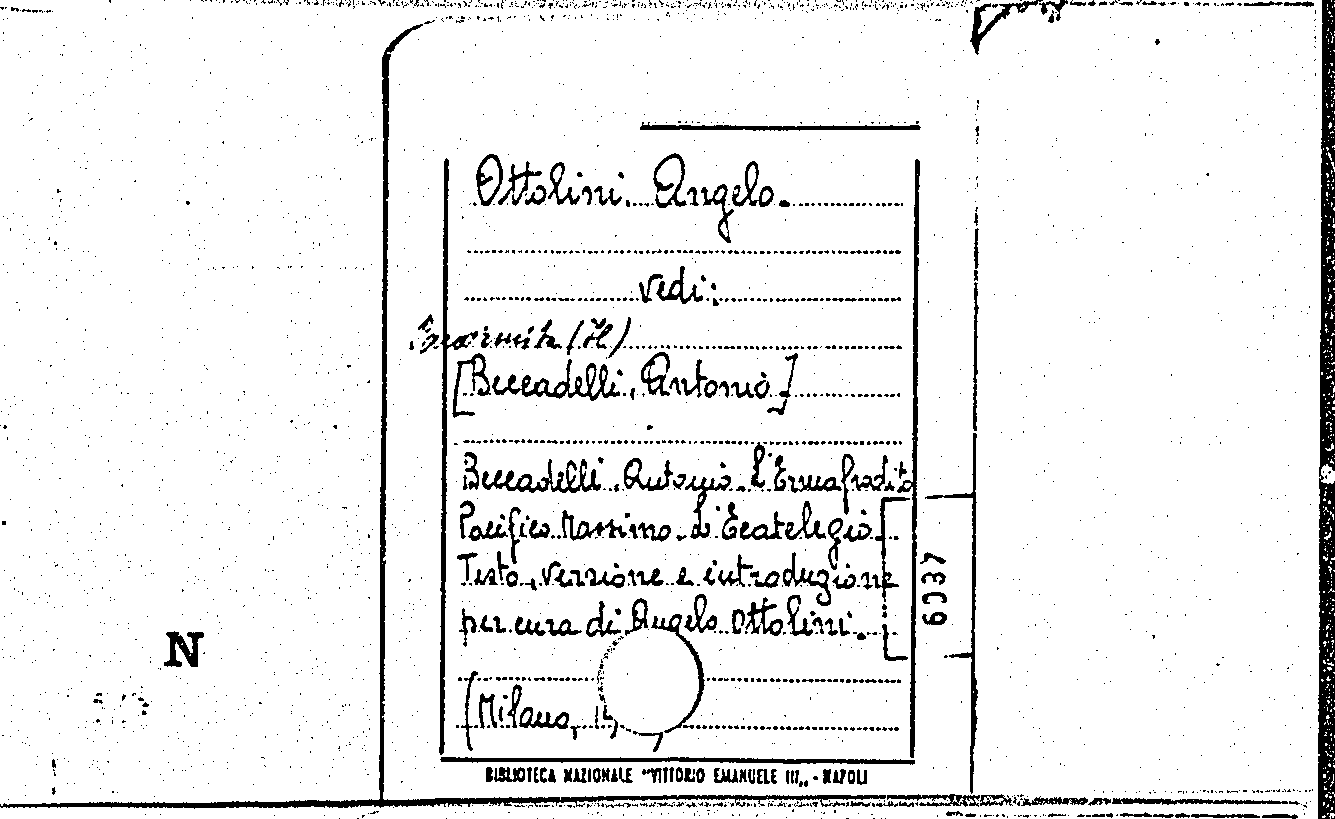 Ottolini, Angelo.
vedi:
Panormita (Il)
[Beccadelli, Antonio]
Beccadelli, Antonio. L'Ermafrodito
Pacifico Massimo. L'Ecatelegio.
Testo, versione e introduzione
per cura di Angelo Ottolini.
(Milano,
6037
N
BIBLIOTECA NAZIONALE "VITTORIO EMANUELE III„ - NAPOLI